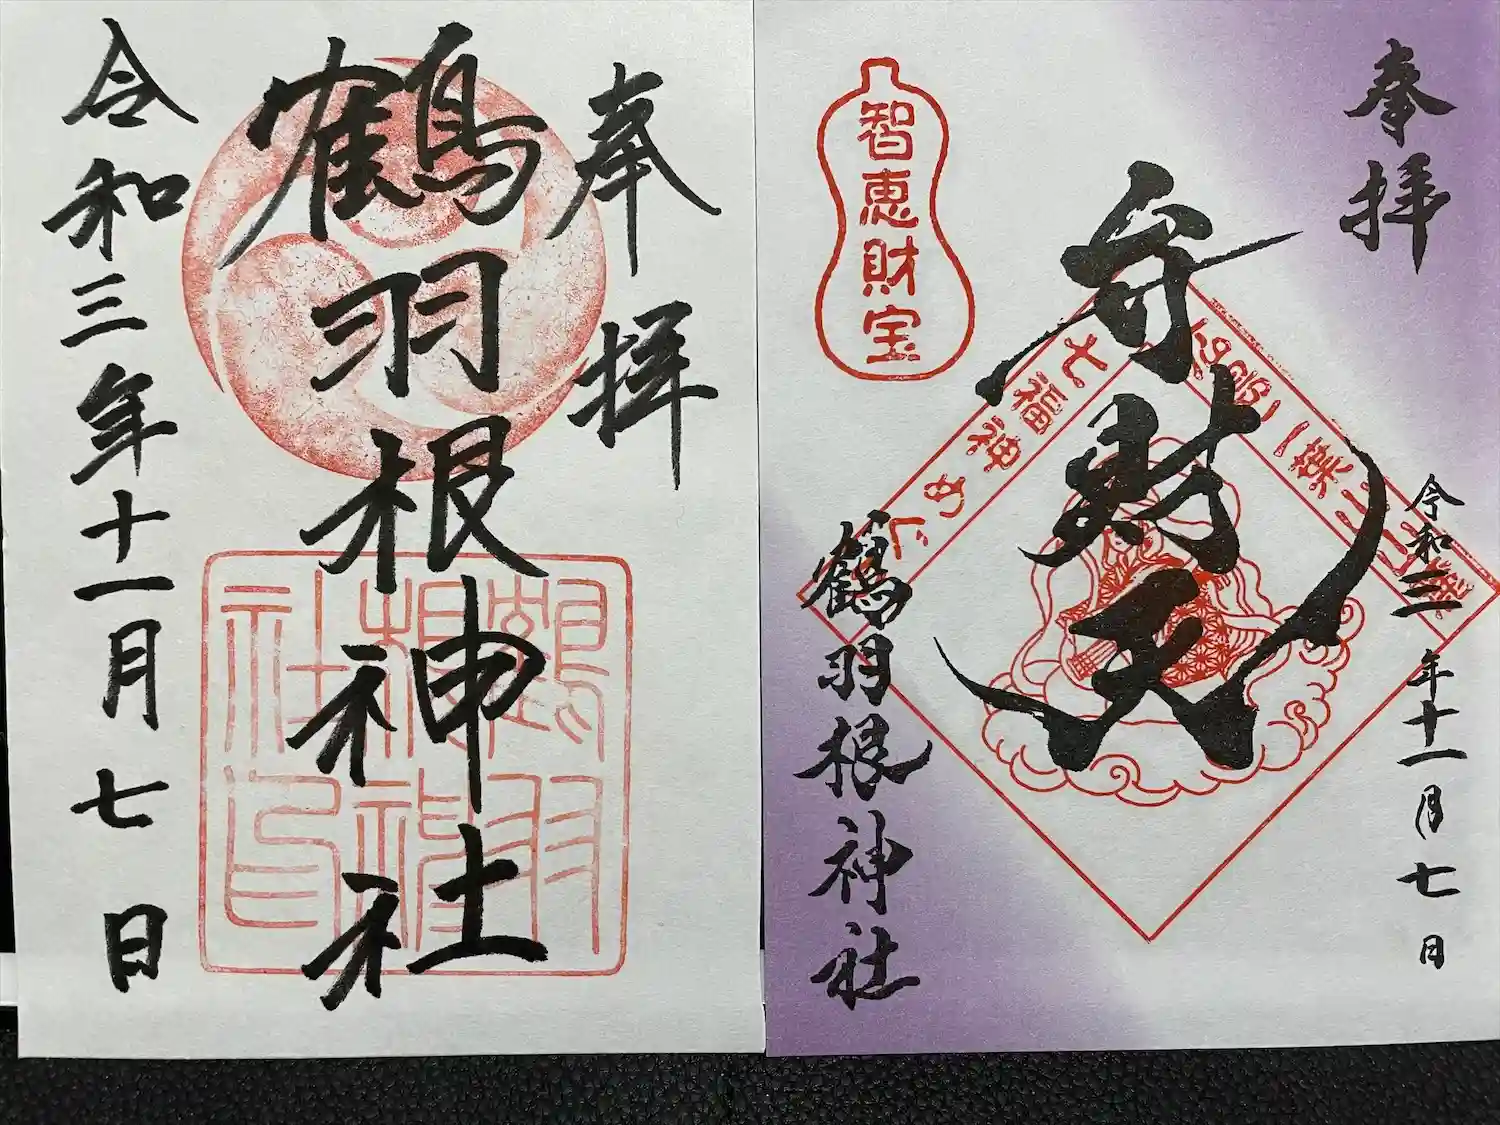 奉拝
鶴羽根神社
令和三年十一月七日
鶴羽根神社印
奉拝
弁財天
智恵財宝
七福神めぐ
令和三年十一月七日
鶴羽根神社